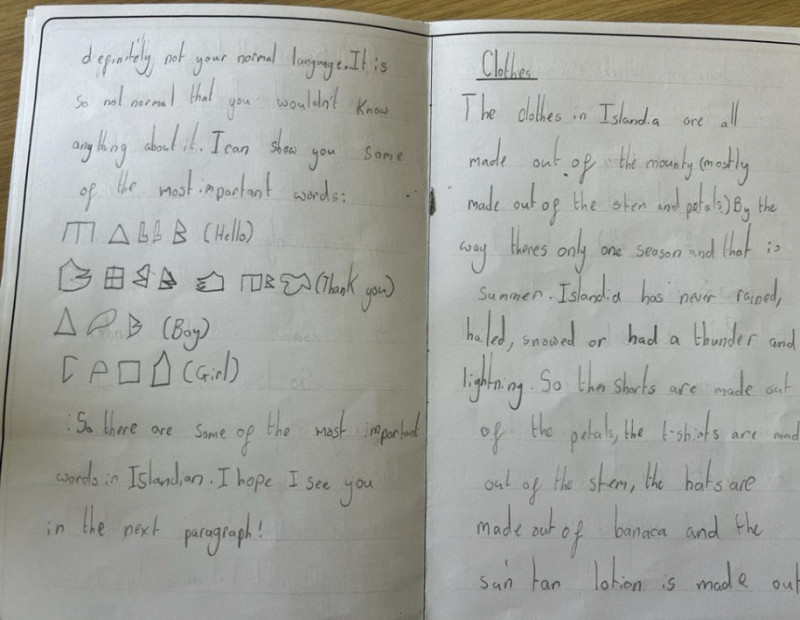 definitely not your normal language. It is
so not normal that you wouldn't know
anything about it. I can show you some
of the most important words:
(Hello)
(Thank you)
(Boy)
(Girl)
:So there are some of the most important
words in Islandian. I hope I see you
in the next paragraph!
Clothes
The clothes in Islandia are all
made out of the mounty (mostly
made out of the stem and petals.) By the
way theres only one season and that is
summer. Islandia has never rained,
hailed, snowed or had a thunder and
lightning. So the shorts are made out
of the petals, the t-shirts are mad
out of the stem, the hats are
made out of banaca and the
sun tan lotion is made out